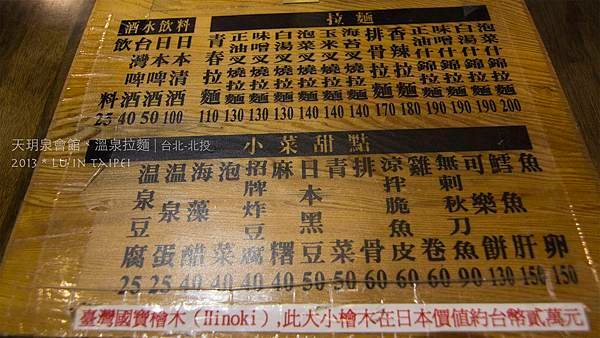 酒水飲料
飲料 25
台灣啤酒 40
日本啤酒 50
日本清酒 100
拉麵
青春拉麵 110
正油叉燒拉麵 130
味噌叉燒拉麵 130
白湯叉燒拉麵 130
泡菜叉燒拉麵 140
玉米叉燒拉麵 140
海苔叉燒拉麵 140
排骨拉麵 170
香辣拉麵 180
正油什錦拉麵 190
味噌什錦拉麵 190
白湯什錦拉麵 190
泡菜什錦拉麵 200
天玥泉會館、溫泉拉麵 | 台北-北投
2013 * LU IN TAIPEI
小菜甜點
温泉豆腐 25
温泉蛋 25
海藻醋 40
泡菜 40
招牌炸豆腐 40
麻糬 40
日本黑豆 50
青菜 50
排骨 60
涼拌脆魚皮 60
雞卷 60
無刺秋刀魚 90
可樂餅 130
鱈魚肝 150
魚卵 150
臺灣國寶檜木（Hinoki）,此大小檜木在日本價值約台幣貳萬元